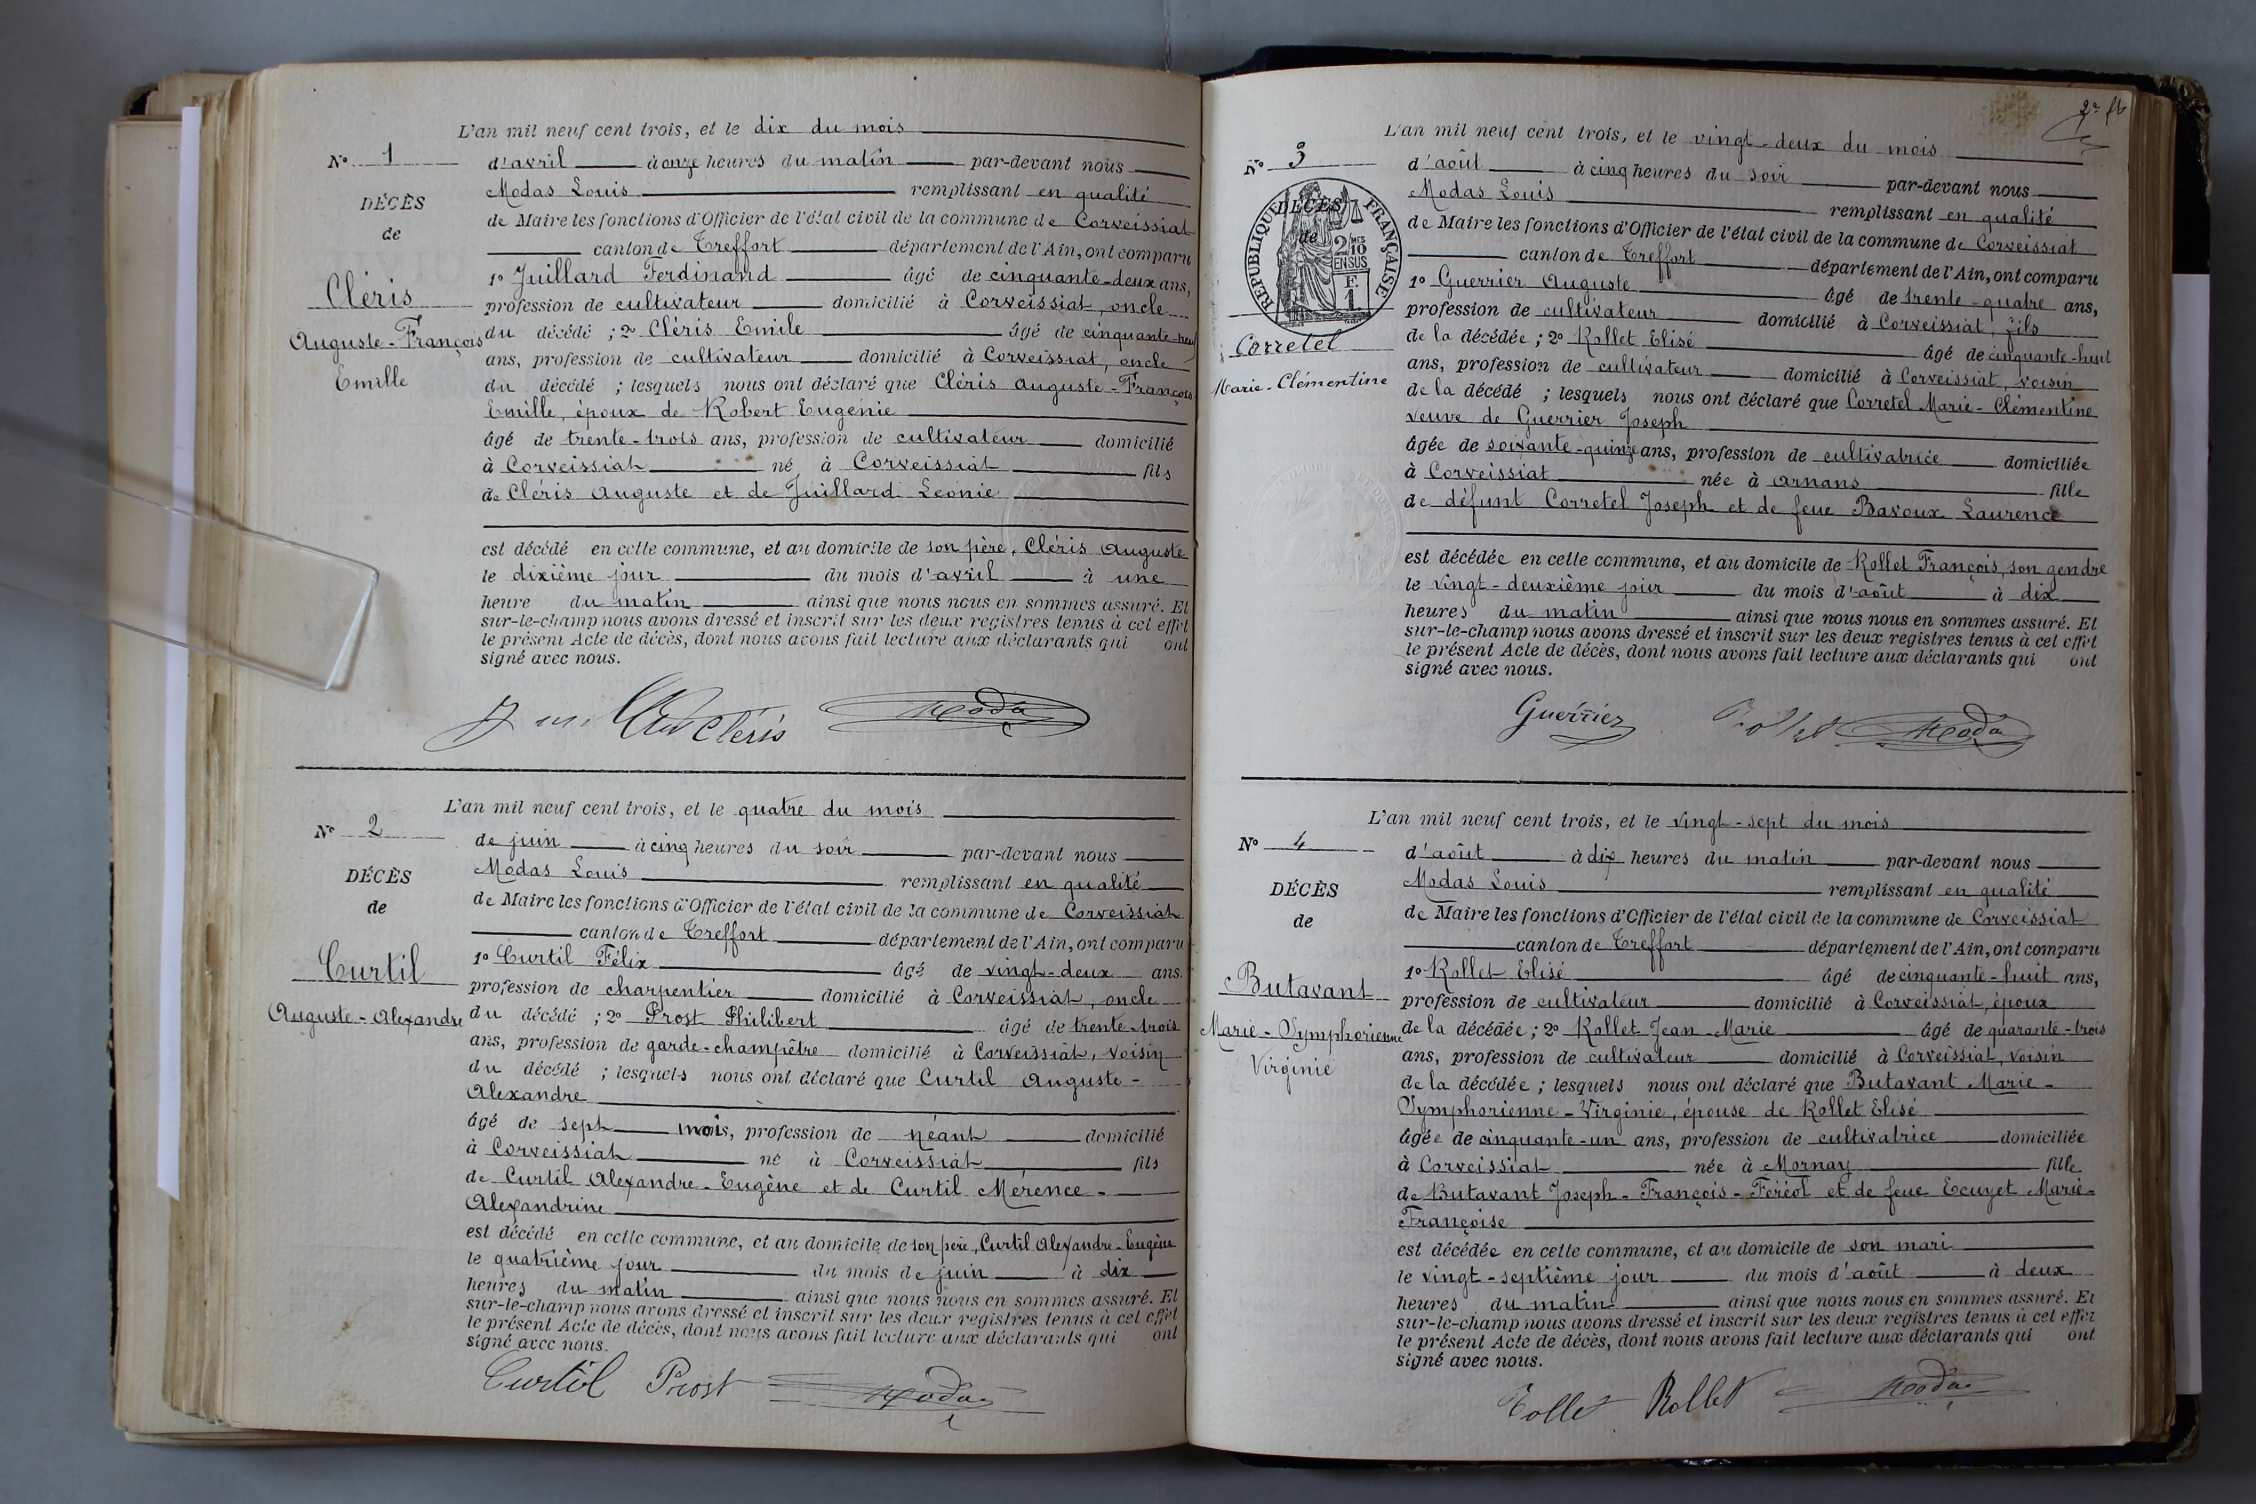 L'an mil neuf cent trois, et le dix du mois
N° 1
d'avril à onze heures du matin par-devant nous
Modas Louis remplissant en qualité
DÉCÈS
de Maire les fonctions d'Officier de l'état civil de la commune de Corveissiat
de
canton de Treffort département de l'Ain, ont comparu
1° Juillard Ferdinand âgé de cinquante-deux ans,
Cléris
profession de cultivateur domicilié à Corveissiat, oncle
Auguste-François
du décédé ; 2° Cléris Emile âgé de cinquante-neuf
ans, profession de cultivateur domicilié à Corveissiat, oncle
Emille
du décédé ; lesquels nous ont déclaré que Cléris Auguste-François
Emille, époux de Robert Eugénie
âgé de trente-trois ans, profession de cultivateur domicilié
à Corveissiat né à Corveissiat fils
de Cléris Auguste et de Juillard Léonie
est décédé en cette commune, et au domicile de son père, Cléris Auguste
le dixième jour du mois d'avril à une
heure du matin ainsi que nous nous en sommes assuré. Et
sur-le-champ nous avons dressé et inscrit sur les deux registres tenus à cet effet
le présent Acte de décès, dont nous avons fait lecture aux déclarants qui ont
signé avec nous.
Cléris Modas
L'an mil neuf cent trois, et le quatre du mois
N° 2
de juin à cinq heures du soir par-devant nous
Modas Louis remplissant en qualité
DÉCÈS
de Maire les fonctions d'Officier de l'état civil de la commune de Corveissiat
de
canton de Treffort département de l'Ain, ont comparu
1° Curtil Félix âgé de vingt-deux ans.
Curtil
profession de charpentier domicilié à Corveissiat, oncle
Auguste-Alexandre
du décédé ; 2° Prost Philibert âgé de trente-trois
ans, profession de garde-champêtre domicilié à Corveissiat, voisin
du décédé ; lesquels nous ont déclaré que Curtil Auguste-
Alexandre
âgé de sept mois, profession de néant domicilié
à Corveissiat né à Corveissiat fils
de Curtil Alexandre-Eugène et de Curtil Mérence-
Alexandrine
est décédé en cette commune, et au domicile de son père, Curtil Alexandre-Eugène
le quatrième jour du mois de juin à dix
heures du matin ainsi que nous nous en sommes assuré. Et
sur-le-champ nous avons dressé et inscrit sur les deux registres tenus à cet effet
le présent Acte de décès, dont nous avons fait lecture aux déclarants qui ont
signé avec nous.
Curtil Prost Modas
L'an mil neuf cent trois, et le vingt-deux du mois
N° 3
d'août à cinq heures du soir par-devant nous
Modas Louis remplissant en qualité
DÉCÈS
de
RÉPUBLIQUE FRANÇAISE
2 MES
10
EN SUS
F.
1
de Maire les fonctions d'Officier de l'état civil de la commune de Corveissiat
canton de Treffort département de l'Ain, ont comparu
1° Guerrier Auguste âgé de trente-quatre ans,
profession de cultivateur domicilié à Corveissiat, fils
Corretel
de la décédée ; 2° Rollet Elisé âgé de cinquante-huit
ans, profession de cultivateur domicilié à Corveissiat, voisin
Marie-Clémentine
de la décédé ; lesquels nous ont déclaré que Corretel Marie-Clémentine
veuve de Guerrier Joseph
âgée de soixante-quinze ans, profession de cultivatrice domiciliée
à Corveissiat née à Arnans fille
de défunt Corretel Joseph et de feue Bavoux Laurence
est décédée en cette commune, et au domicile de Rollet François, son gendre
le vingt-deuxième jour du mois d'août à dix
heures du matin ainsi que nous nous en sommes assuré. Et
sur-le-champ nous avons dressé et inscrit sur les deux registres tenus à cet effet
le présent Acte de décès, dont nous avons fait lecture aux déclarants qui ont
signé avec nous.
Guerrier Rollet Modas
L'an mil neuf cent trois, et le vingt-sept du mois
N° 4
d'août à dix heures du matin par-devant nous
Modas Louis remplissant en qualité
DÉCÈS
de Maire les fonctions d'Officier de l'état civil de la commune de Corveissiat
de
canton de Treffort département de l'Ain, ont comparu
1° Rollet Elisé âgé de cinquante-huit ans,
Butavant
profession de cultivateur domicilié à Corveissiat, époux
Marie-Symphorienne
de la décédée ; 2° Rollet Jean-Marie âgé de quarante-trois
ans, profession de cultivateur domicilié à Corveissiat, voisin
Virginie
de la décédée ; lesquels nous ont déclaré que Butavant Marie-
Symphorienne-Virginie, épouse de Rollet Elisé
âgée de cinquante-un ans, profession de cultivatrice domiciliée
à Corveissiat née à Mornay fille
de Butavant Joseph-François-Féréol et de feue Ecuyet Marie-
Françoise
est décédée en cette commune, et au domicile de son mari
le vingt-septième jour du mois d'août à deux
heures du matin ainsi que nous nous en sommes assuré. Et
sur-le-champ nous avons dressé et inscrit sur les deux registres tenus à cet effet
le présent Acte de décès, dont nous avons fait lecture aux déclarants qui ont
signé avec nous.
Rollet Rollet Modas